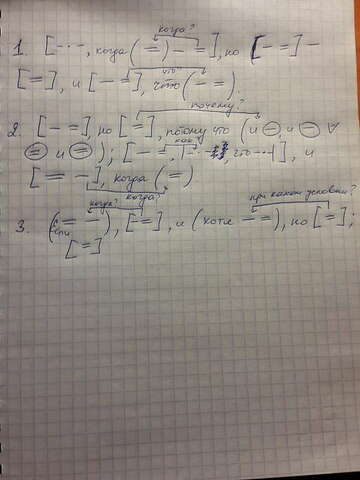 когда?
1. [-·-·, когда (=) - =], но [- =] -
что?
[=], и [- =], что (- =).
почему?
2. [- =], но [=], потому что (и - и -
как
= и =); [- =, |-·-|, что ···], и
[= -], когда (=)
когда?
когда? при каком условии?
3. (если = -), [- =], и (хотя - =), но [=];
[=]